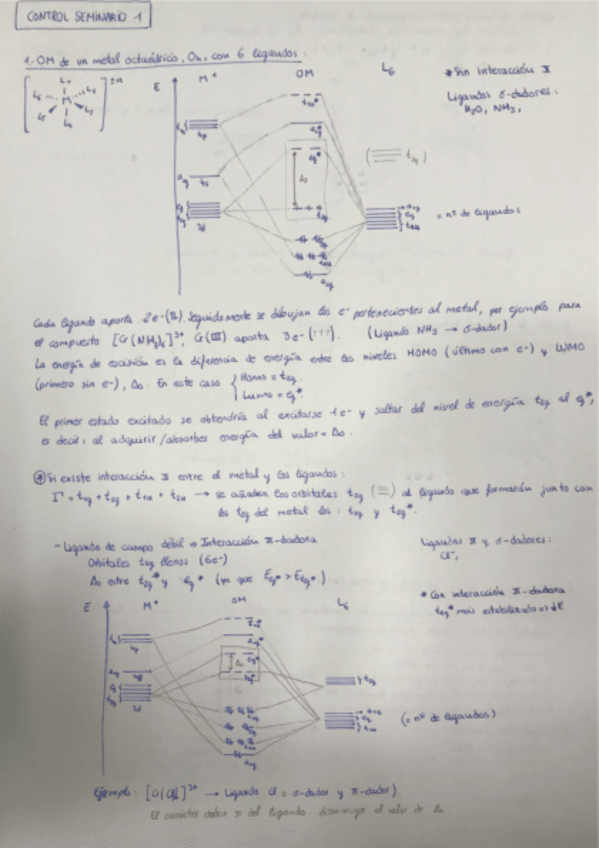 CONTROL SEMINARIO 1
1. OM de un metal octaédrico, Oh, con 6 ligandos:
E M+ OM L6
* Sin interacción π
Ligandos σ-dadores:
H2O, NH3,
= nº de ligandos
Cada ligando aporta 2e- (1↓). Seguidamente se dibujan los e- pertenecientes al metal, por ejemplo para
el compuesto [Cr(NH3)6]3+, Cr(III) aporta 3e- (↑↑↑). (Ligando NH3 → σ-dador)
La energía de escisión es la diferencia de energía entre los niveles HOMO (último con e-) y LUMO
(primero sin e-), Δo. En este caso { Homo = t2g.
Lumo = eg*.
El primer estado excitado se obtendría al excitarse 1e- y saltar del nivel de energía t2g al eg*,
es decir, al adquirir/absorber energía del valor = Δo.
Si existe interacción π entre el metal y los ligandos:
Γ = t1g + t2g + t1u + t2u → se añaden los orbitales t2g (≡) al ligando que formarán junto con
los t2g del metal los: t2g y t2g*.
- Ligando de campo débil → Interacción π-dadora
Orbitales t2g llenos (6e-)
Δo entre t2g* y eg* (ya que Eeg* > Et2g*)
Ligandos π y σ-dadores:
Cl-,
* Con interacción π-dadora
t2g* más
E M+ OM L6
(= nº de ligandos)
Ejemplo: [Cr(Cl)6]3+ → Ligando Cl = σ-dador y π-dador).
El carácter dador π del ligando disminuye el valor de Δo.